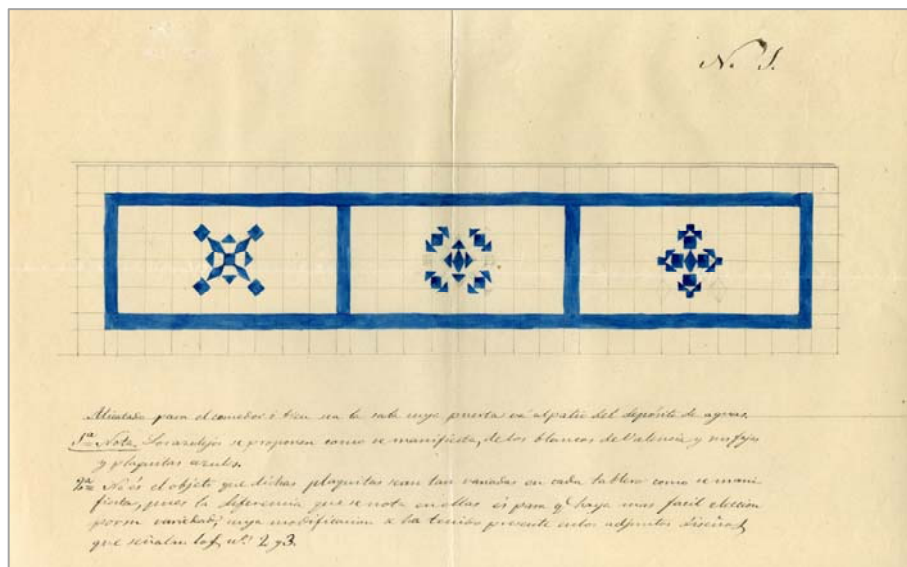 N. 1.
Alicatado para el comedor ó sea en la sala cuya puerta vá al patio del depósito de aguas.
1ª Nota. Los azulejos se proponen como se manifiesta, de los blancos de Valencia y sus fajas
y plaquitas azules.
2ª No és el objeto que dichas plaquitas sean tan variadas en cada tablero como se mani-
fiesta, pues la diferencia que se nota en ellas és para q.e haya mas facil eleccion
por su variedad; cuya modificacion se ha tenido presente en los adjuntos diseños
que señalan los n.os 2 y 3.